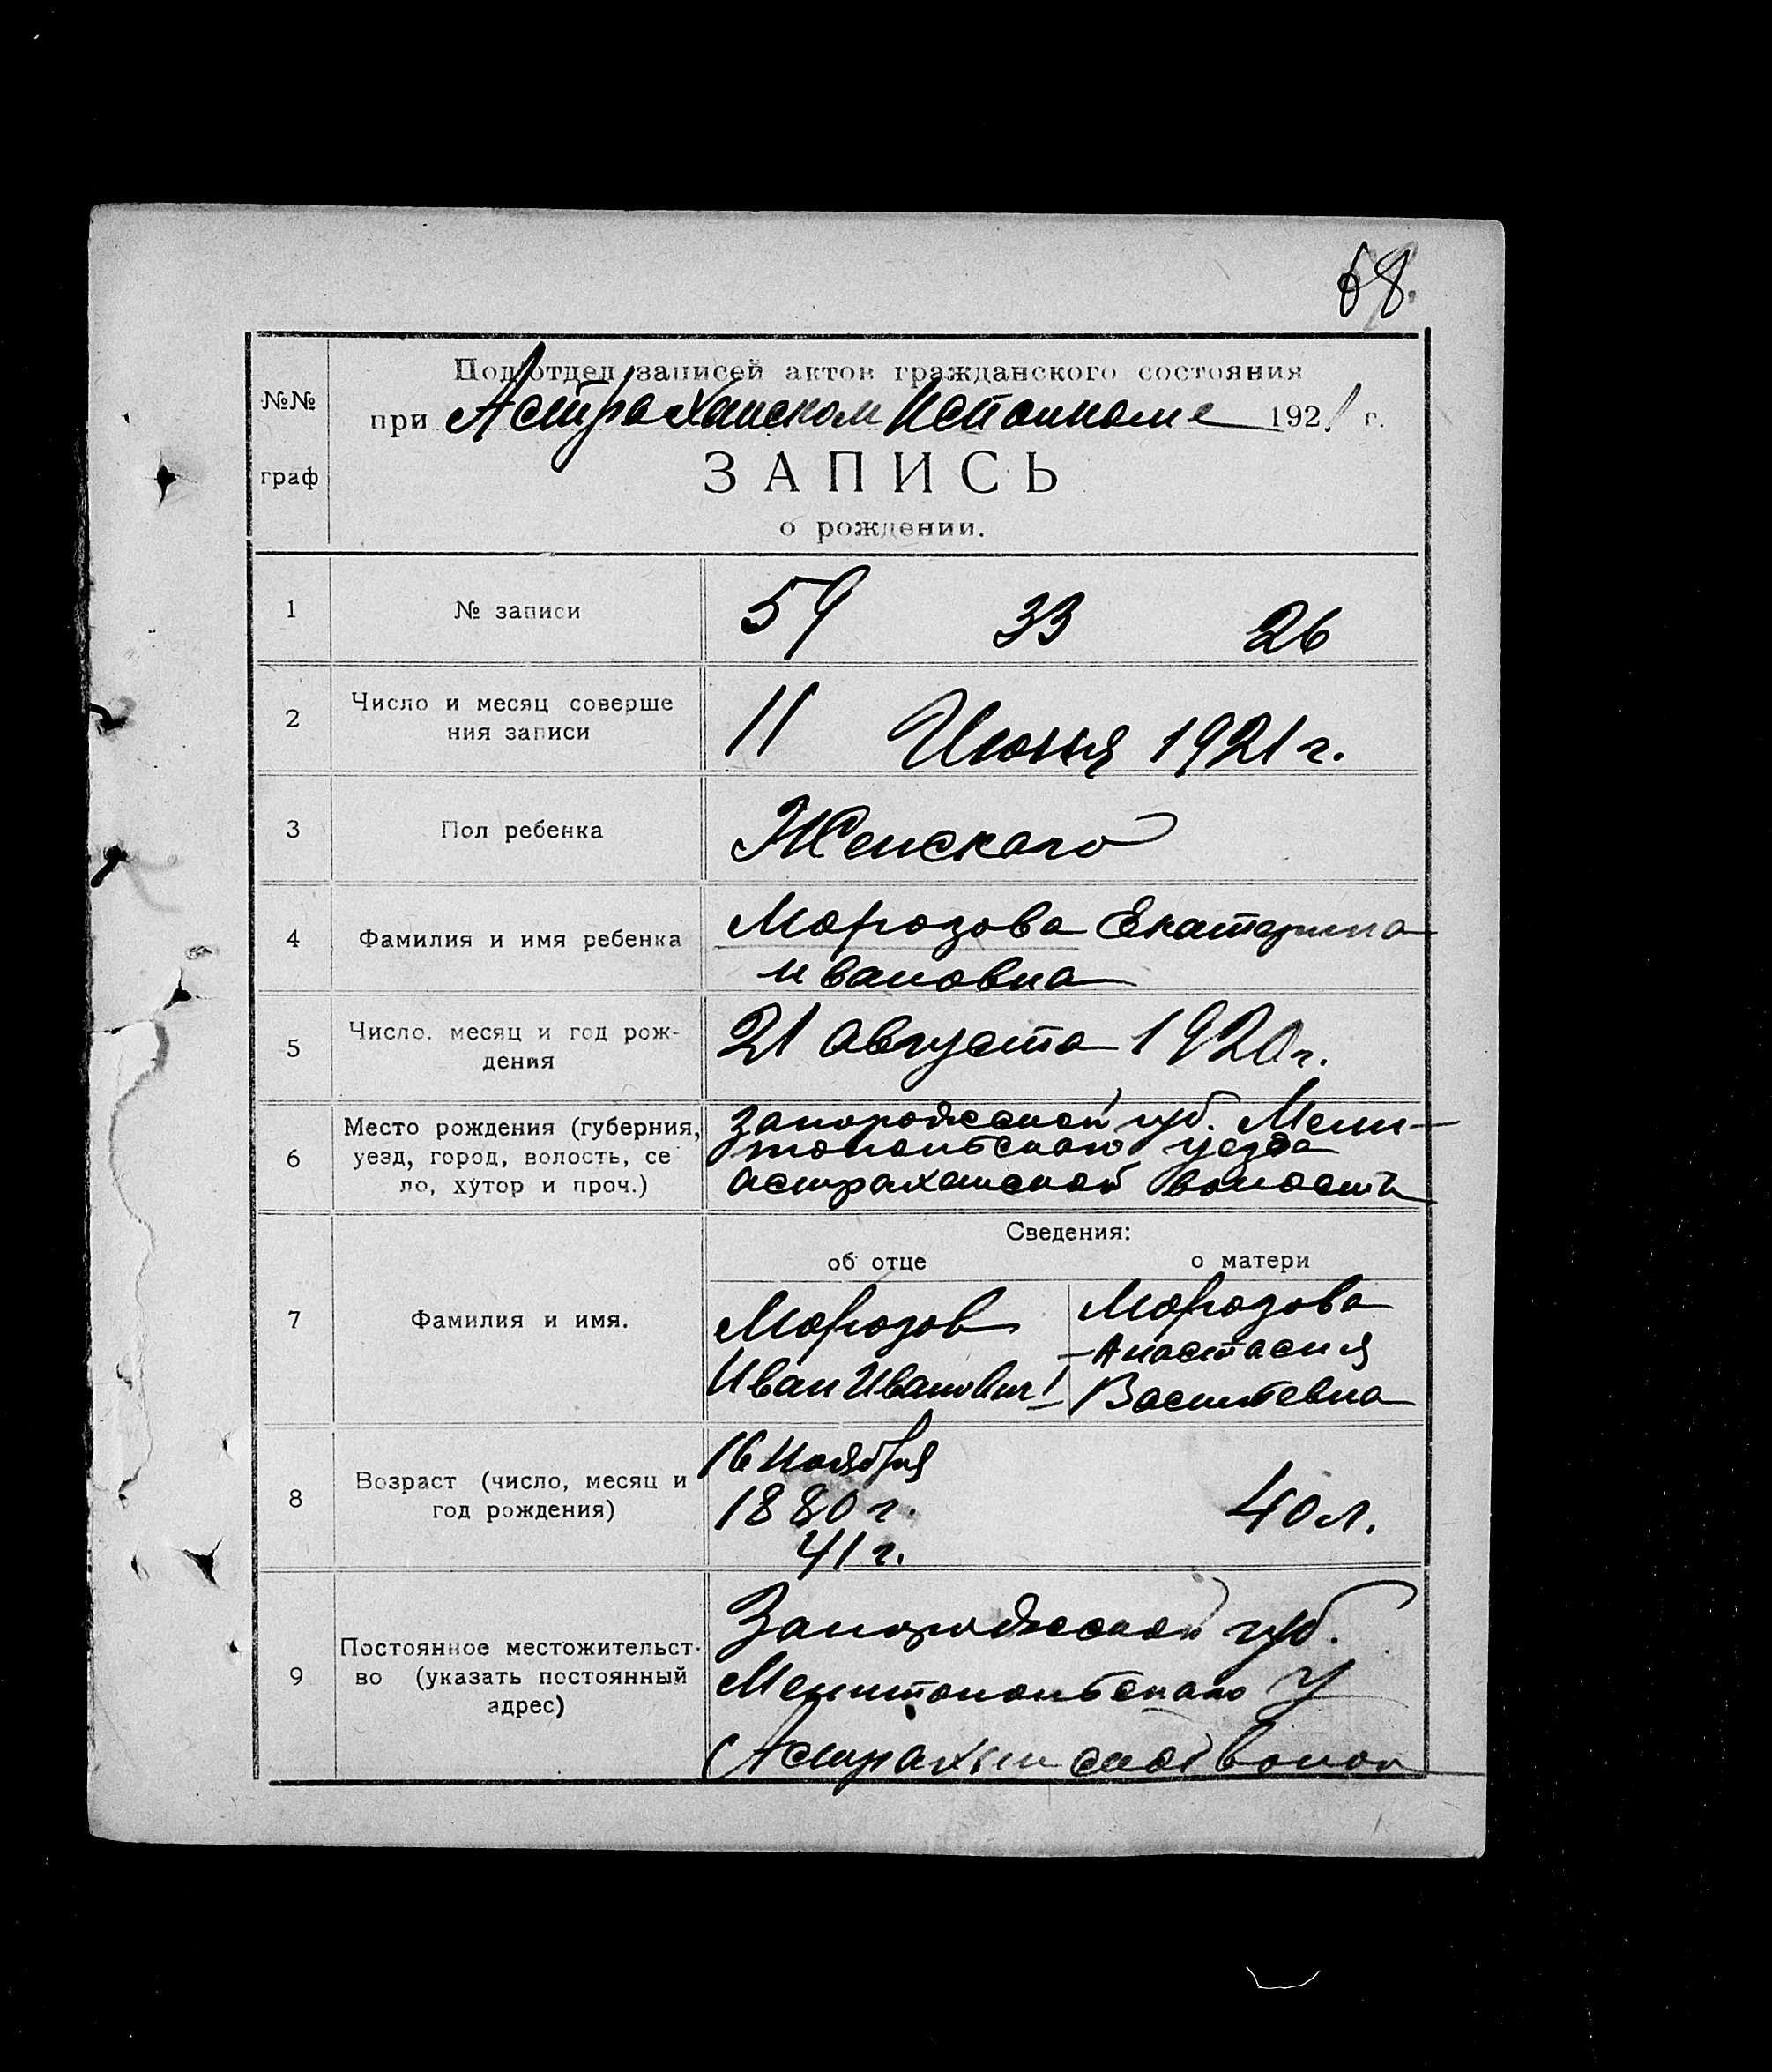 68.
№№ граф
Подотдел записей актов гражданского состояния
при Астраханском Исполкоме 1921 г.
ЗАПИСЬ
о рождении.
1 № записи 59 33 26
2 Число и месяц соверше
ния записи
11 Июня 1921 г.
3 Пол ребенка Женского
4 Фамилия и имя ребенка
Морозова Екатерина
Ивановна
5 Число, месяц и год рож-
дения
21 августа 1920 г.
6 Место рождения (губерния,
уезд, город, волость, се
ло, хутор и проч.)
Запорожской губ. Мели-
топольского уезда
Астраханской волости
Сведения:
об отце о матери
7 Фамилия и имя.
Морозов
Иван Иванович
Морозова
Анастасия
Васильевна
8 Возраст (число, месяц и
год рождения)
16 Ноября
1880 г.
41 г.
40 л.
9 Постоянное местожительст-
во (указать постоянный
адрес)
Запорожской губ.
Мелитопольского у
Астраханской волос